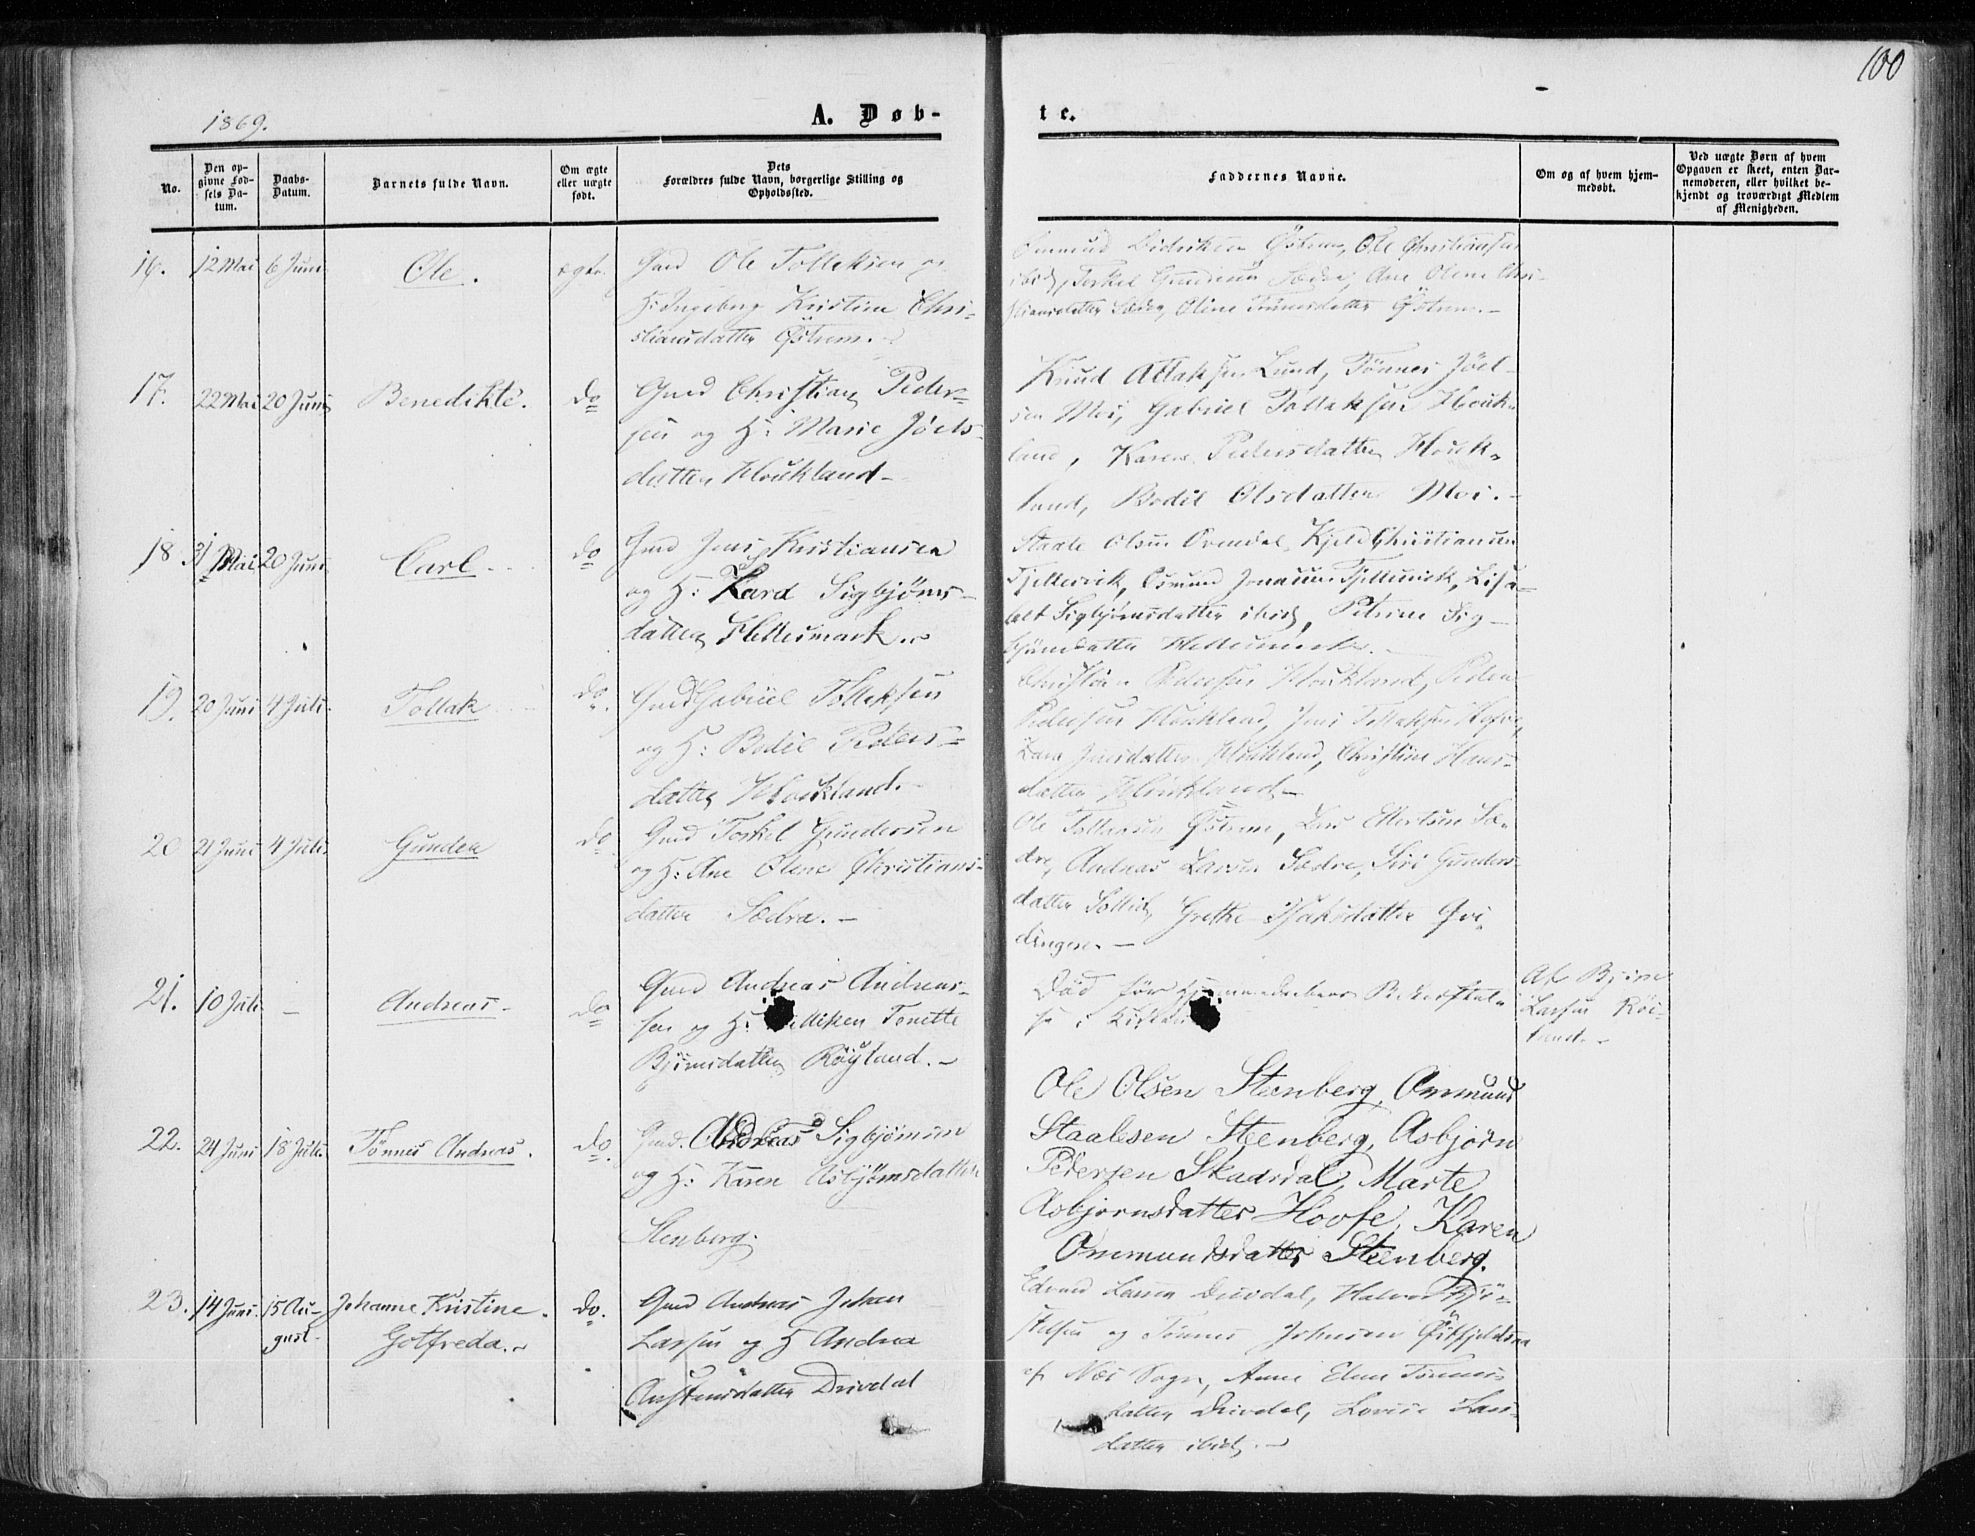 100
1869.
A. Døb-
te.
No.
Den op-
givne Fød-
sels Da-
tum.
Daabs-
Datum.
Barnets fulde Navn.
Om ægte
eller uægte
født.
Dets
Forældres fulde Navn, borgerlige Stilling og
Opholdssted.
Faddernes Navne.
Om og af hvem hjem-
medøbt.
Ved uægte Børn af hvem
Opgaven er skeet, enten Bar-
nemoderen, eller hvilket be-
kjendt og troværdigt Medlem
af Menigheden.
16. 12 Mai 6 Juni Ole. ægte. Gmd Ole Tollaksen og
H: Ingeborg Kristine Chri-
stiansdatter Østrem.
Didriksen Østrem, Ole Christiansen
ibid, Torkel Gundersen Sædre, Ane Olene Chri-
stiansdatter Sædre, Oline Tønnesdatter Østrem.-
17. 22 Mai 20 Juni Benedikte. do Gmd Christian Peder-
sen og H: Marie Joels-
datter Houkland-
Knud Atlaksen Lund, Tønnes Joel-
sen Moi, Gabriel Tollaksen Houk-
land, Karen Pedersdatter Houk-
land, Bodil Olsdatter Moi.-
18. 31 Mai 20 Juni Carl do Gmd Jens Kristiansen
og H: Sigbjørns-
datter
Staale Olsen Kjeld Christiansen
Osmund Jonassen Lisa-
bet Sigbjørnsdatter ibid, Petrine Sig-
bjørnsdatter
19. 20 Juni 4 Juli. Tollak do. Gmd Gabriel Tollaksen
og H: Bodil Peders-
datter Houkland.
Christian Pedersen Houkland, Peder
Pedersen Houkland, Jens Tollaksen
Jensdatter Houkland, Christine Hans-
datter Houkland-
20 21 Juni 4 Juli. Gunder do Gmd Torkel Gundersen
og H: Ane Olene Christians-
datter Sædre.-
Ole Tollaksen Østrem, Lars Sæ-
dre, Andreas Larsen Sædre, Siri Gunders-
datter Grethe Isaksdatter Qvi-
dingere.-
21. 10 Juli - Andreas - do Gmd Andreas Andreas-
sen og H: Tonette
Bjørnsdatter Røyland.-
Død før
i Kirken
Af Bjørn
Larsen Røi-
land.-
22. 24 Juni 18 Juli. Tønnes Andreas. do. Gmd. Andreas Sigbjørnsen
og H: Karen Asbjørnsdatter
Stenberg.
Ole Olsen Steenberg, Ommund
Staalesen Steenberg, Asbjørn
Pedersen Skaardal, Marte
Asbjørnsdatter Hovfe, Karen
Ommundsdatter Steenberg.
23. 14 Juni. 15 Au- Johanne Kristine do. Gmd Andreas Johan
gust. Gotfreda. Larsen og H Andrea
Drivdal
Edvard Larsen Drivdal, Halvor
og Tønnes Johnsen
af Næs Sogn, Anne Elene Tønnes-
datter Drivdal, Lovise Lars-
datter ibid.-